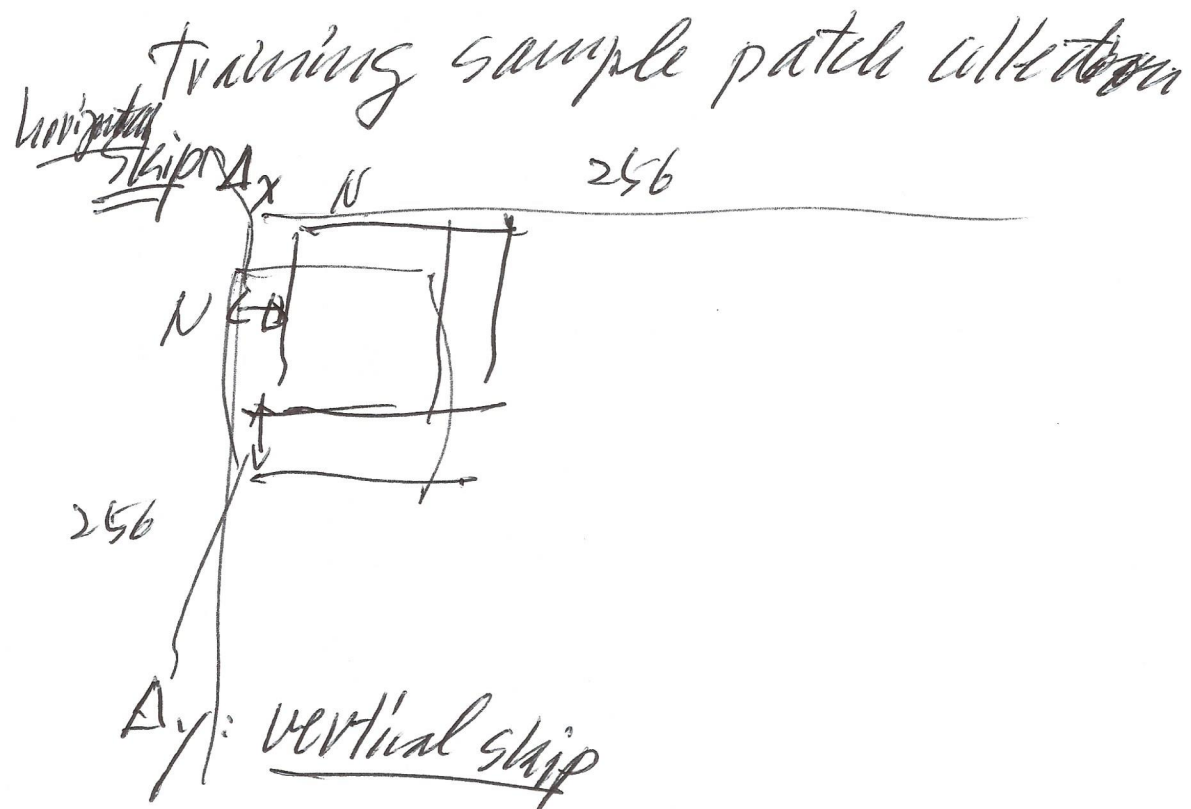 Training sample patch collection
horizontal
skip Δx
N
256
N
256
Δy: vertical skip